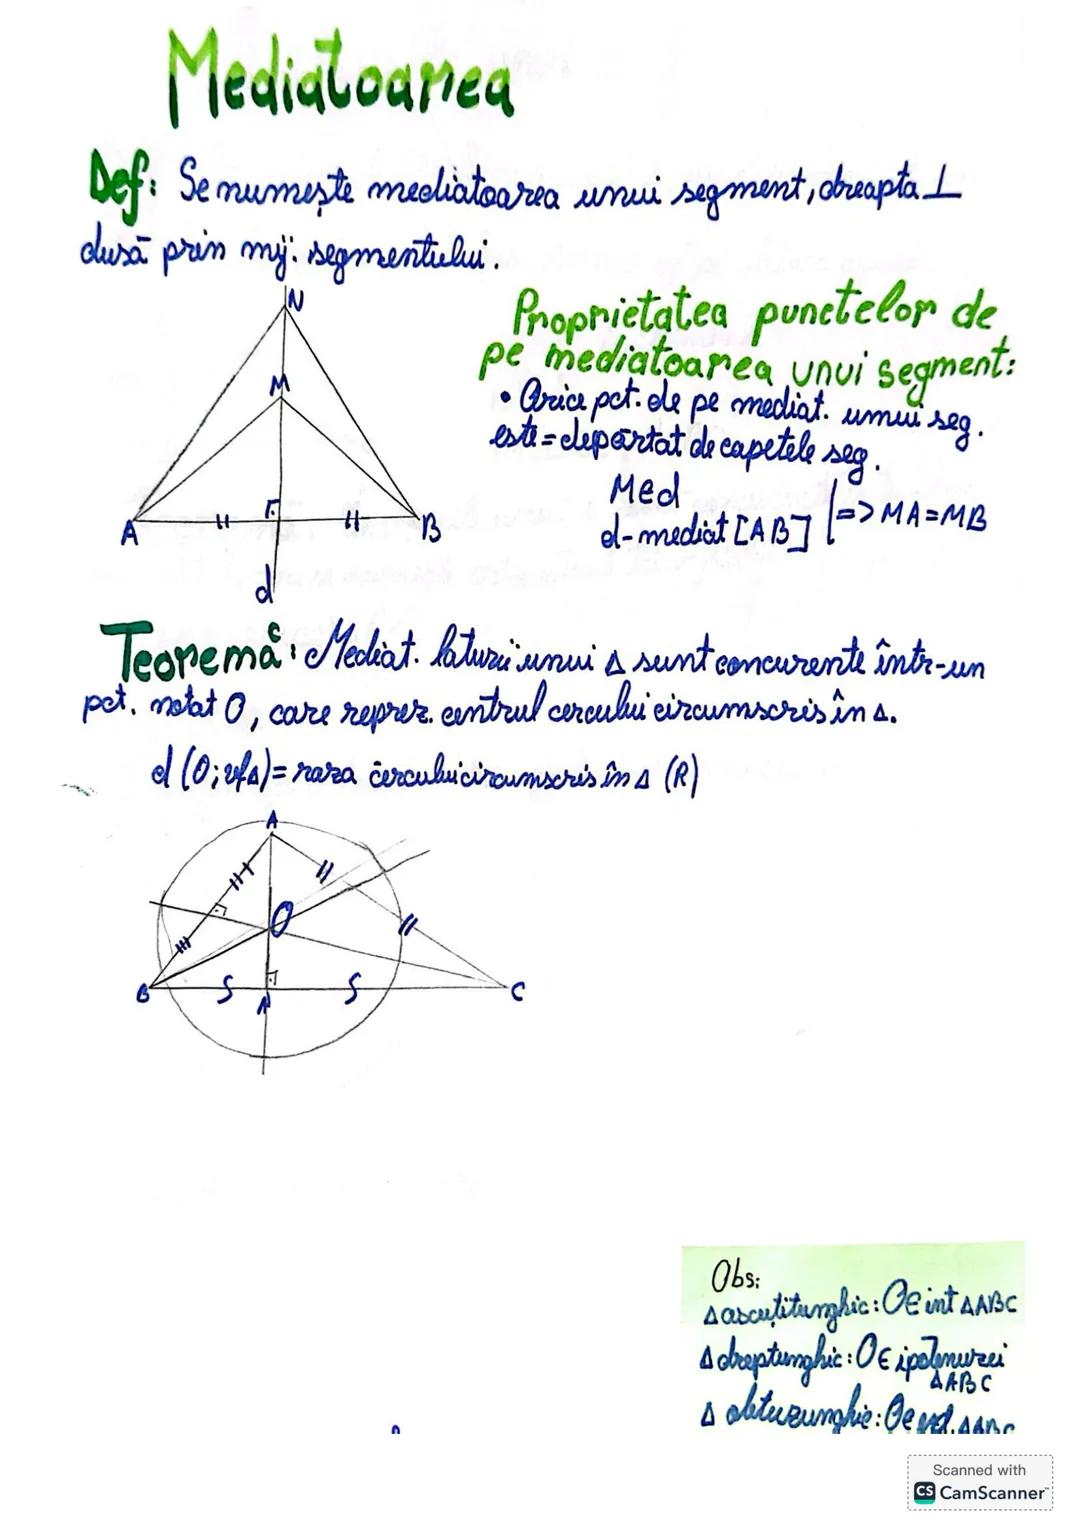 Mediatoarea
Def: Se numește mediatoarea unui segment, dreapta ⊥
dusă prin mij. segmentului.
N
M
A
B
d
Proprietatea punctelor de
pe mediatoarea unui segment:
• Orice pct. de pe mediat. unui seg.
este = depărtat de capetele seg.
M∈d
d-mediat [AB] | => MA=MB
Teoremă: Mediat. laturii unui Δ sunt concurente într-un
pct. notat O, care reprez. centrul cercului circumscris în Δ.
d (O; vfΔ) = raza cercului circumscris în Δ (R)
A
O
B
A'
C
Obs:
Δ ascuțitunghic: O∈ int ΔABC
Δ dreptunghic: O∈ ipotenuzei
ΔABC
Δ obtuzunghic: O∈ ext. ΔABC
Scanned with
CS CamScanner